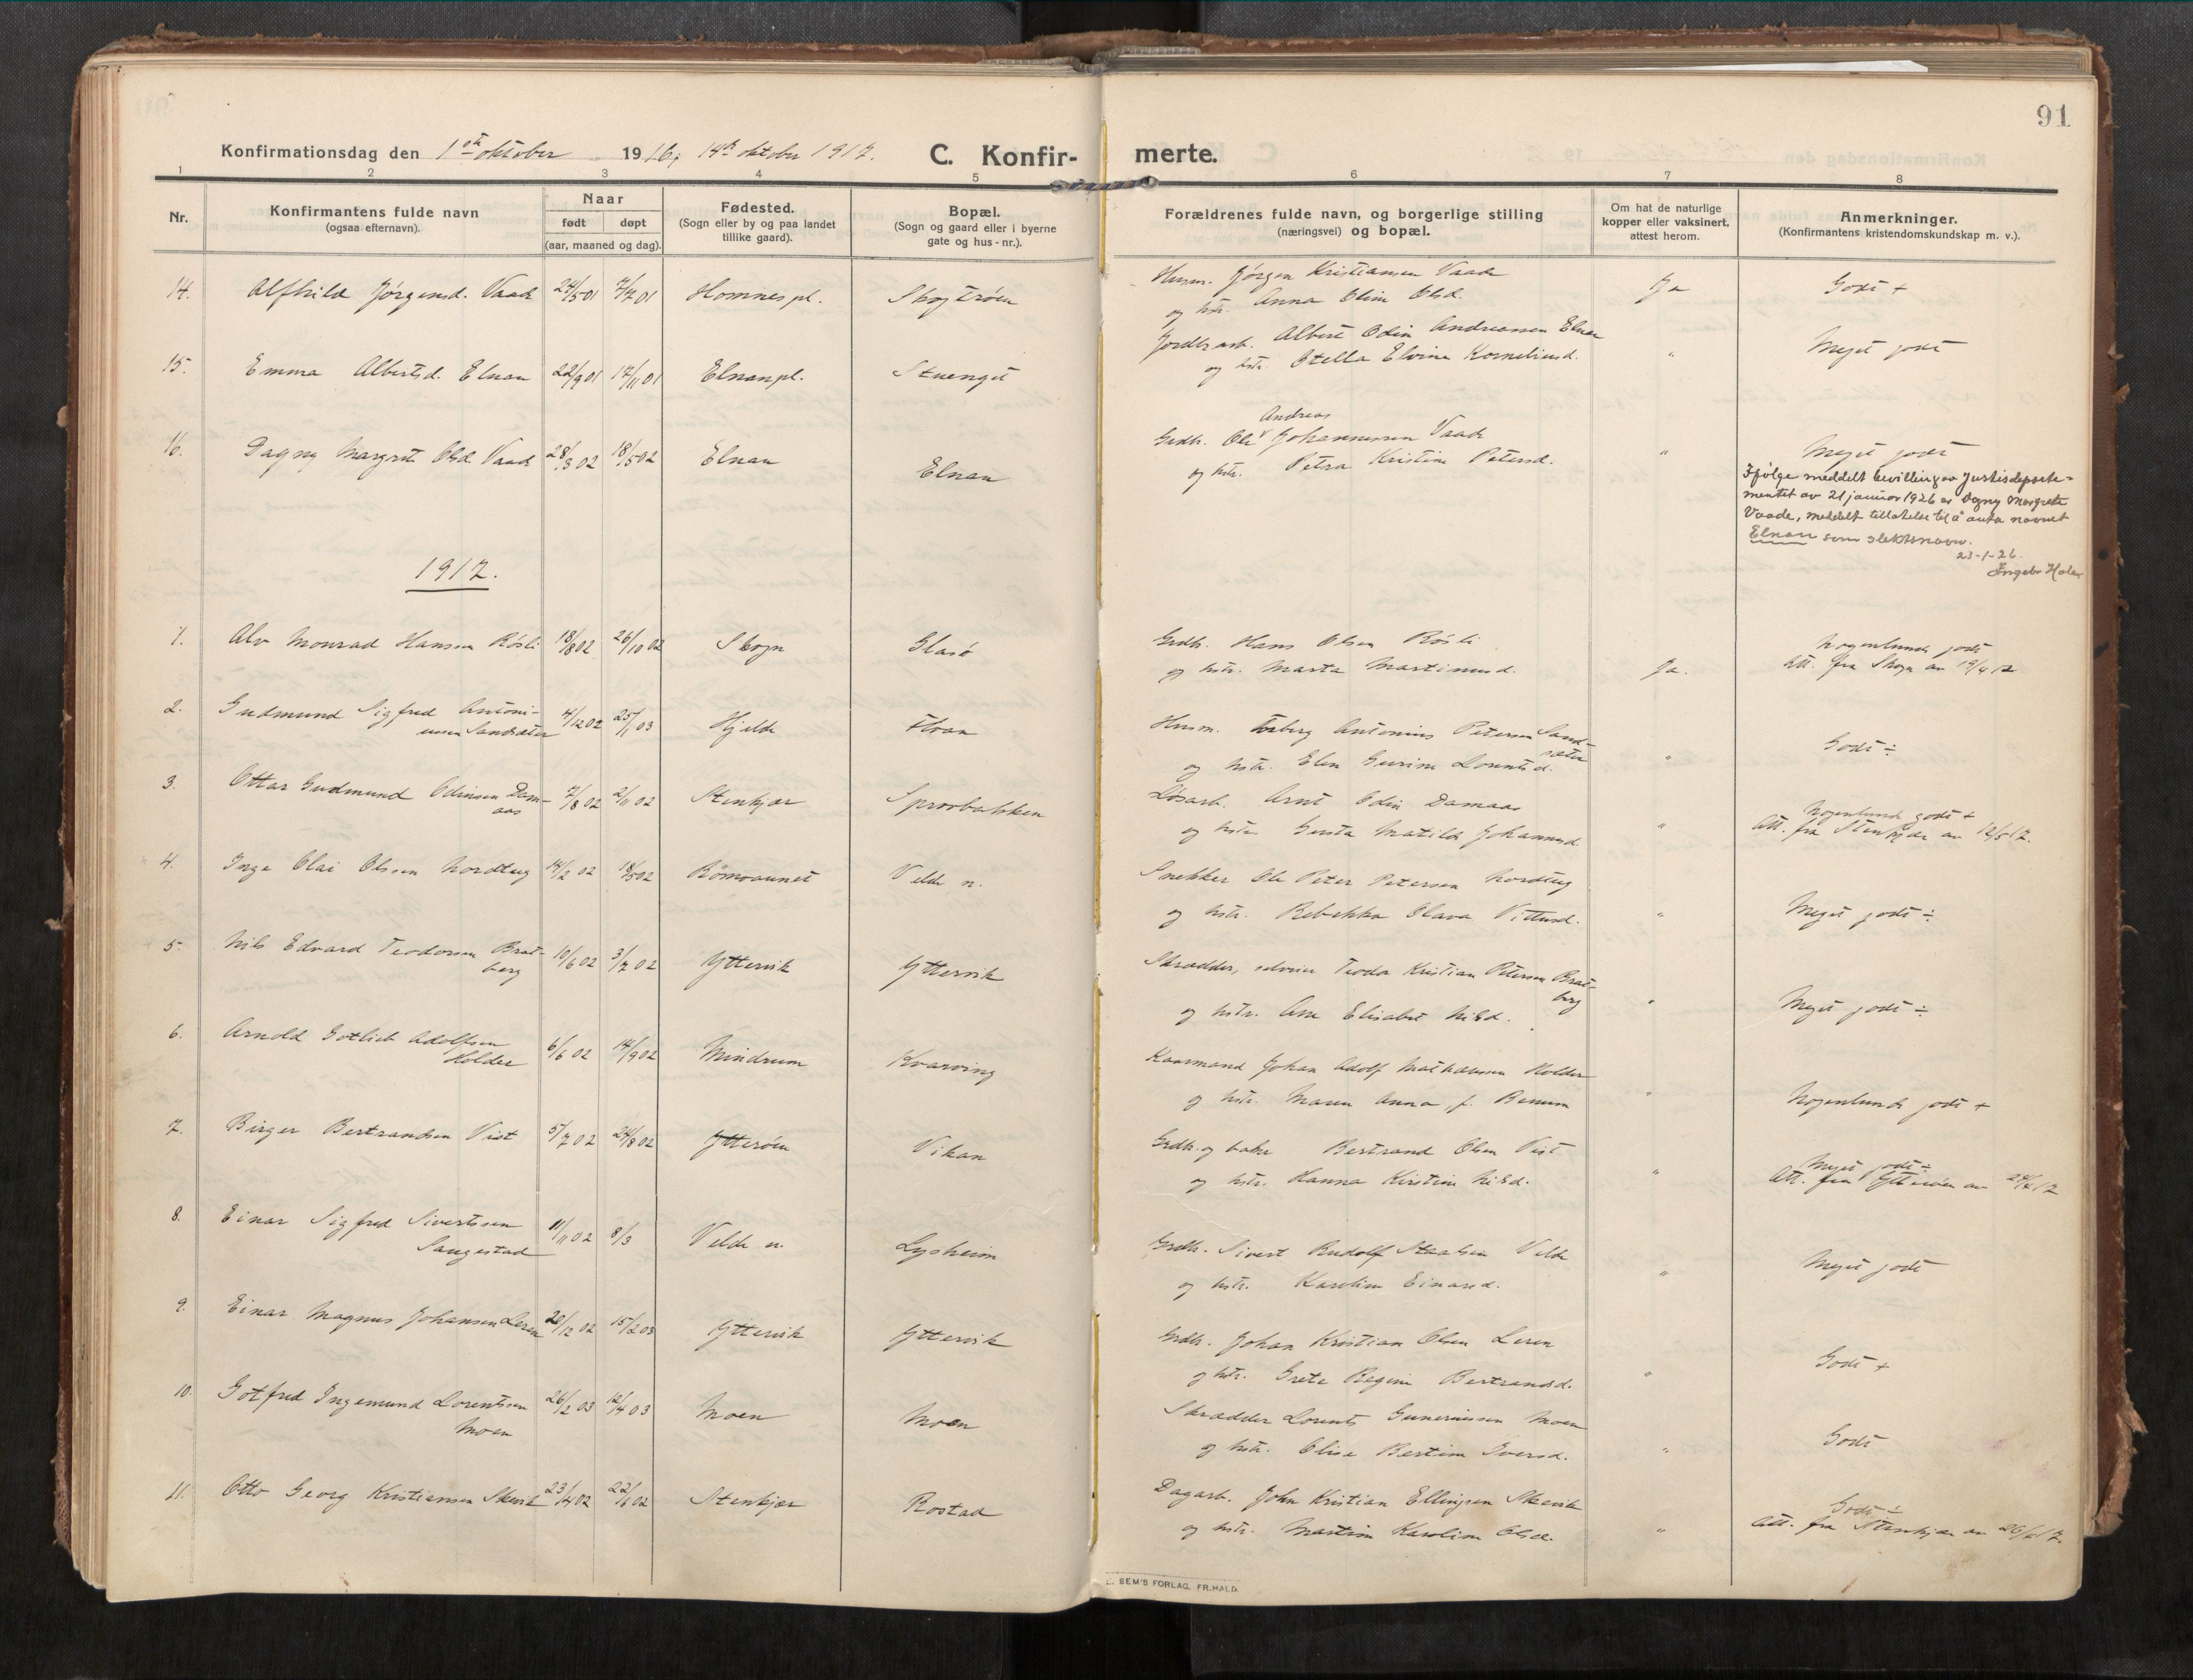 91
Konfirmationsdag den 1ste oktober 1916; 14de oktober 1917. C. Konfirmerte.
1 2 3 4 5 6 7 8
Nr. Konfirmantens fulde navn (ogsaa efternavn). Naar født døpt (aar, maaned og dag). Fødested. (Sogn eller by og paa landet tillike gaard). Bopæl. (Sogn og gaard eller i byerne gate og hus-nr.). Forældrenes fulde navn, og borgerlige stilling (næringsvei) og bopæl. Om hat de naturlige kopper eller vaksinert, attest herom. Anmerkninger. (Konfirmantens kristendomskundskap m. v.).
14. Alfhild Jørgensd. Vaade 24/5 01 7/7 01 Homnes pl. Husm. Jørgen Kristiansen Vaade Ja Godt +
og hstr. Anna Oline Olsd.
15. Emma Albertsd. Elnan 22/9 01 17/11 01 Elnan pl. Stuenget Jordbr.arb. Albert Odin Andreassen Elnan " Meget godt
og hstr. Otella Elvine Korneliusd.
16. Dagny Margrete Olsd. Vaade 28/3 02 18/5 02 Elnan Elnan Grdbr. Ole Andreas Johannessen Vaade " Meget godt
og hstr. Petra Kristine Petersd.
Ifølge meddelt bevilling av Justisdeparte-
mentet av 21 januar 1926 er Dagny Margrete
Vaade, meddelt tillatelse til å anta navnet
Elnan som slektsnavn.
23-1-26.
1917.
1. Alv Monrad Hansen Røsli 18/8 02 26/10 02 Skogn Glasø Grdbr. Hans Olsen Røsli Ja. Nogenlunde godt
og hstr. Marta Martinusd. Att. fra Skogn av 19/4 17
2. Gudmund Sigfred Antoni-
ussen Sandsæter 4/12 02 25/1 03 Hjelde Floan Husm. Torberg Antonius Petersen Sand-
sæter " Godt ÷
og hstr. Elen Gurine Lorntsd.
3. Ottar Gudmund Odinsen Dam-
aas 7/8 02 2/11 02 Stenkjær Sprovbakken Løsarb. Arnt Odin Damaas " Nogenlunde godt +
og hstr. Gusta Matilde Johannesd. Att. fra Stenkjær av 12/5 17.
4. Inge Olai Olssen Nordtug 14/2 02 18/5 02 Rømoaunet Velde n. Snekker Ole Peter Petersen Nordtug " Meget godt ÷
og hstr. Rebekka Olava
5. Nils Edvard Teodorsen Brat-
berg 10/6 02 3/7 02 Yttervik Yttervik Skrædder, selveier Teodor Kristian Petersen Brat-
berg " Meget godt ÷
og hstr. Ane Elisabet Nilsd.
6. Arnold Gotlieb Adolfsen
Holder 6/6 02 14/9 02 Mindrum Kvarving Kaarmand Johan Adolf Mathæussen Holder " Nogenlunde godt +
og hstr. Maren Anna f. Benum
7. Birger Bertrandsen Vist 5/7 02 24/8 02 Ytterøen Vikan Grdbr. og baker Bertrand Olsen Vist " Meget godt ÷
og hstr. Hanna Kirstine Nilsd. Att. fra Ytterøen av
8. Einar Sigfred Sivertssen
Saugestad 11/11 02 8/3 Velde n. Lysheim Grdbr. Sivert Rudolf Staalsen Velde " Meget godt
og hstr. Karoline Einarsd.
9. Einar Magnus Johansen Leren 20/12 02 15/2 03 Yttervik Yttervik Grdbr. Johan Kristian Olsen Leren " Godt +
og hstr. Grete Regine Bertrandsd.
10. Gotfred Ingemund Lorentsen
Moen 26/2 03 12/4 03 Moen Moen Skrædder Lorents Guneriussen Moen " Godt
og hstr. Elise Bertine Iversd.
11. Otto Georg Kristiansen Skevik 23/4 02 22/6 02 Stenkjær Rostad Dagarb. John Kristian Ellingsen Skevik " Godt ÷
og hstr. Martine Karoline Olsd. Att. fra Stenkjær av
SEM'S FORLAG. FR.HALD.